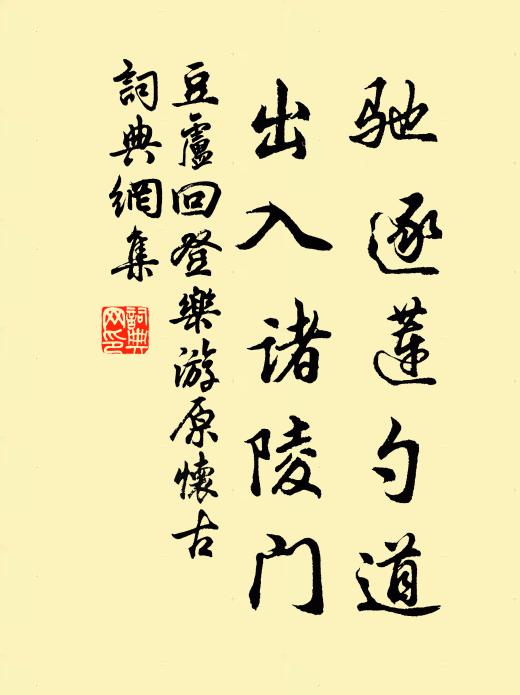 驰逐莲勺道
出入诸陵门
豆盧回登樂游原懷古
詞典網集
詞典网印